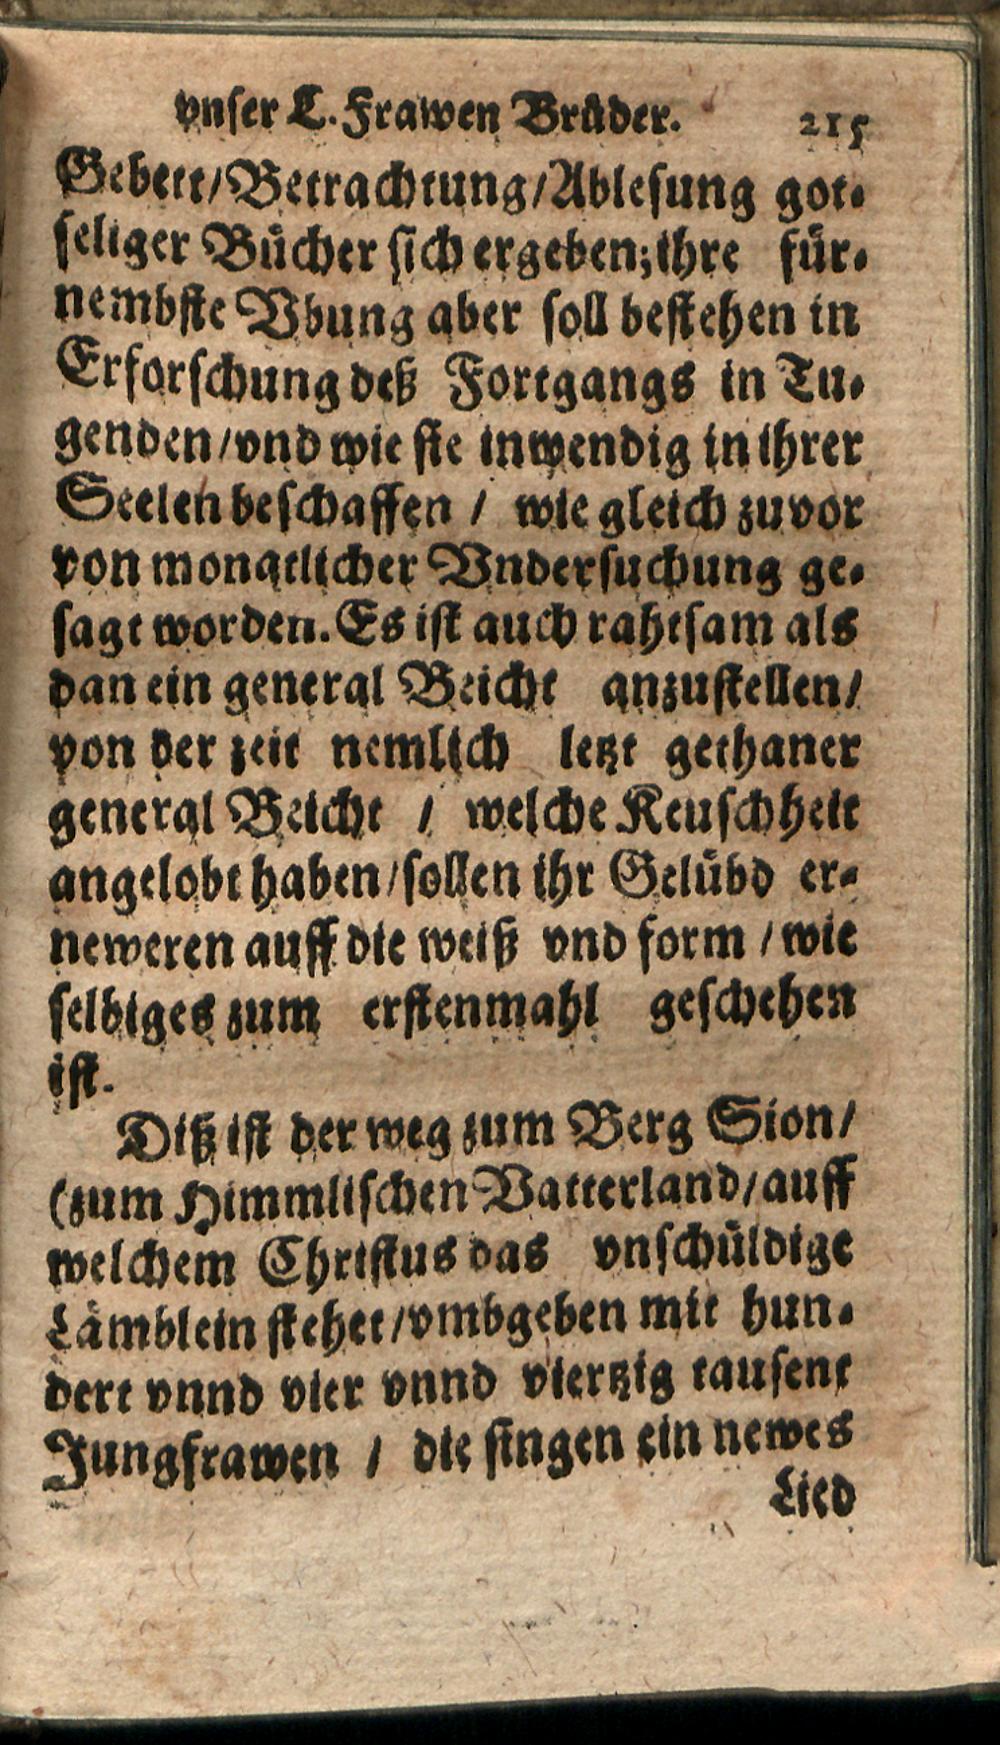 vnser L. Frawen Brüder. 215
Gebett/Betrachtung/Ablesung got-
seliger Bücher sich ergeben; ihre für-
nembste Vbung aber soll bestehen in
Erforschung deß Fortgangs in Tu-
genden/vnd wie sie inwendig in ihrer
Seelen beschaffen / wie gleich zuvor
von monatlicher Vndersuchung ge-
sagt worden. Es ist auch rahtsam als
dan ein general Beicht anzustellen/
von der zeit nemlich letzt gethaner
general Beicht / welche Keuschheit
angelobt haben/sollen ihr Gelübd er-
neweren auff die weiß vnd form / wie
selbiges zum erstenmahl geschehen
ist.
Diß ist der weg zum Berg Sion/
(zum Himmlischen Vatterland/auff
welchem Christus das vnschüldige
Lämblein stehet/vmbgeben mit hun-
dert vnnd vier vnnd viertzig tausent
Jungfrawen / die singen ein newes
Lied